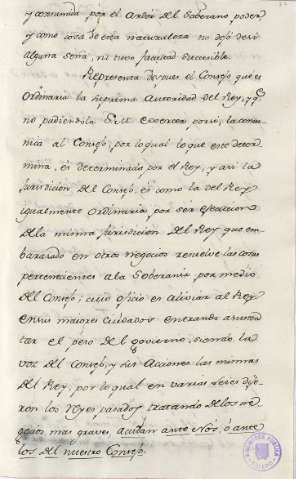 y comunida por el Arbitrio del Soberano poder
y como cosa de esta naturaleza no dejó de si
alguna seña, ni tuvo facultad
Representa después el Consejo, que es
Ordinaria la Suprema Autoridad del Rey, y q.e
no pudiendola S.M. exercer por si, la comu
nica al Consejo, por lo qual lo que este deter
mina, es determinado por el Rey, y asi la
Jurisdicion del Consejo, es como la del Rey
igualmente Ordinaria, por ser
de la misma Jurisdicion del Rey que em
barazado en otros negocios resuelve las cosas
pertenecientes a la Soberania por medio
del Consejo; cuio oficio es aliviar al Rey
en sus maiores cuidados entrando a susten
tar el peso del govierno; siendo la
voz del Consejo, y sus Acciones las mismas
del Rey, por lo qual en varias Leies dije
ron los Reyes pasados tratando de los ne
gocios mas graves, acudan ante Nòs, ò ante
los del nuestro Consejo